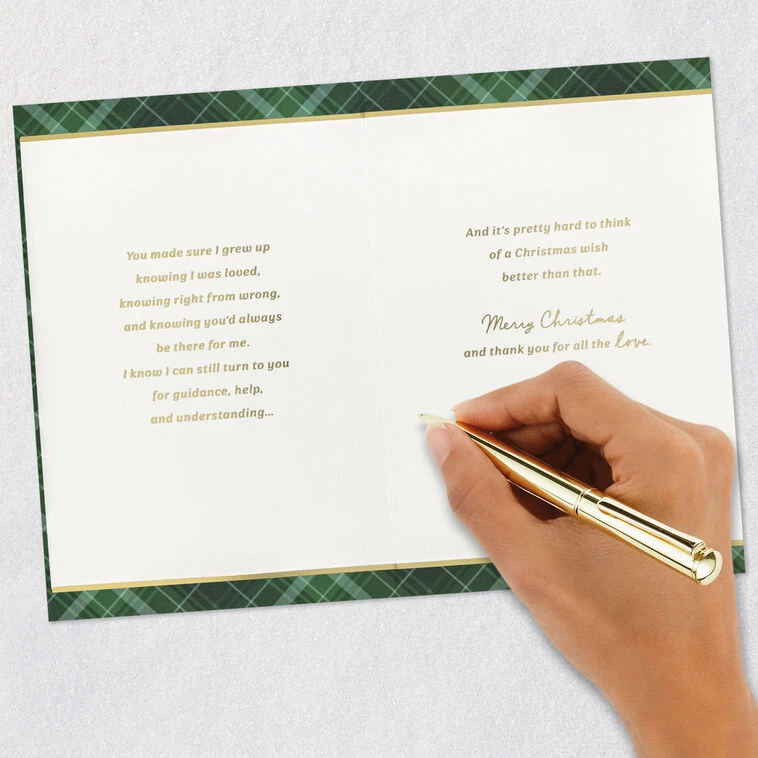 You made sure I grew up
knowing I was loved,
knowing right from wrong,
and knowing you'd always
be there for me.
I know I can still turn to you
for guidance, help,
and understanding...
And it's pretty hard to think
of a Christmas wish
better than that.
Merry Christmas
and thank you for all the love.